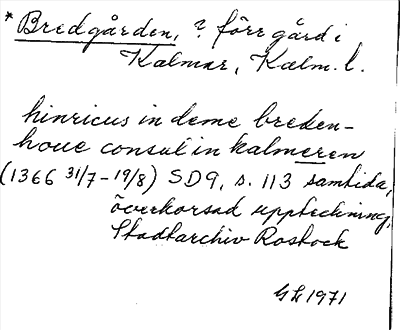 * Bredgården, ? förr gård i
Kalmar, Kalm. l.
hinricus in deme breden-
houe consul in kalmeren
(1366 31/7 – 19/8) SD9, s. 113 samtida,
överkorsad uppteckning,
Stadtarchiv Rostock
GL 1971